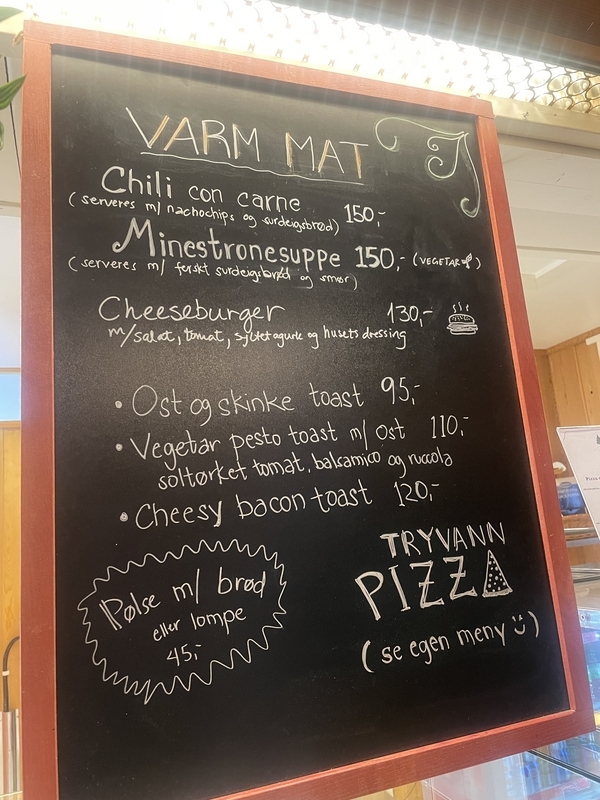 VARM MAT
Chili con carne 150,-
(serveres m/ nachochips og surdeigsbrød)
Minestronesuppe 150,- (VEGETAR)
(serveres m/ ferskt surdeigsbrød og smør)
Cheeseburger 130,-
m/salat, tomat, syltet agurk og husets dressing
• Ost og skinke toast 95,-
• Vegetar pesto toast m/ ost 110,-
soltørket tomat, balsamico og ruccola
• Cheesy bacon toast 120,-
Pølse m/ brød
eller lompe
45,-
TRYVANN
PIZZA
(se egen meny)